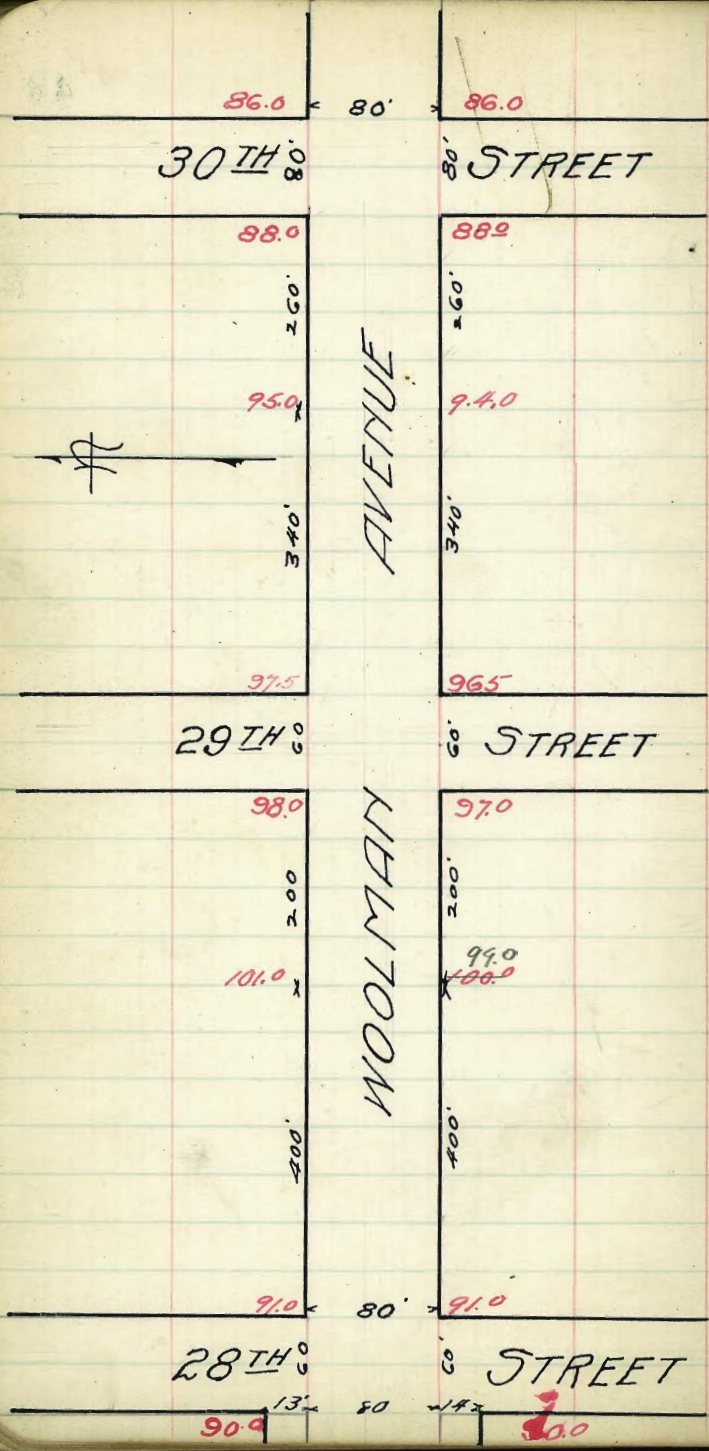 86.0 80' 86.0
30TH 80' 80' STREET
88.0 88.0
260' 260'
95.0 9.4.0
N
AVENUE
340' 340'
97.5 965
29TH 60 60' STREET
98.0 97.0
WOOLMAN
200 200'
99.0
101.0 100.0
400' 400'
91.0 80' 91.0
28TH 60 60' STREET
13' 80 14'
90.0